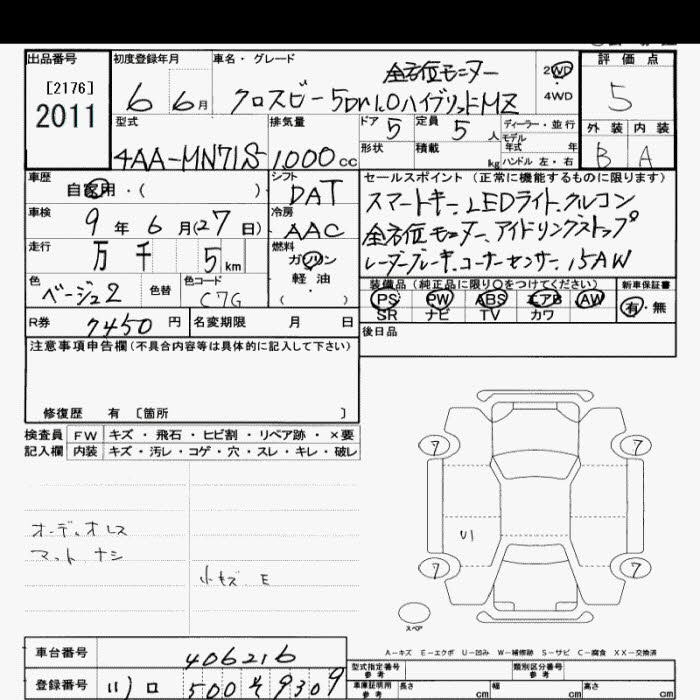 出品番号 初度登録年月 車名・グレード 評価点
[2176]
2011
6 6月
全方位モニター
クロスビー 5Dr 1.0 ハイブリッド MZ
2WD
4WD
5
型式 排気量 ドア 5 定員 5人 ディーラー・並行 外装 内装
モデル年式 年
4AA-MN71S 1,000cc 形状 積載 kg ハンドル 左・右 B A
車歴 シフト セールスポイント (正常に機能するものに限ります)
自家用・( ) DAT スマートキー、LEDライト、クルコン
車検 冷房
9年6月(27日) AAC 全方位モニター、アイドリングストップ
走行 燃料
万 千 5km ガソリン レーダーブレーキ、コーナーセンサー、15AW
軽油
( )
色 色替 色コード 装備品(純正品に限り○をつけてください) 新車保証書
ベージュ2 C7G PS PW ABS エアB AW 有・無
SR ナビ TV カワ
R券 7450円 名変期限 月 日 後日品
注意事項申告欄(不具合内容等は具体的に記入して下さい)
修復歴 有 [箇所 ]
検査員 FW キズ・飛石・ヒビ割・リペア跡・×要
記入欄 内装 キズ・汚レ・コゲ・穴・スレ・キレ・破レ
7 7
オーディオレス
マットナシ
U1
小キズ E
7 7
スペア
A-キズ E-エクボ U-凹み W-補修跡 S-サビ C-腐食 XX-交換済
車台番号 406216
型式指定番号 参考 類別区分番号 参考
登録番号 500 9309
車庫証明用 参考 長さ cm 幅 cm 高さ cm